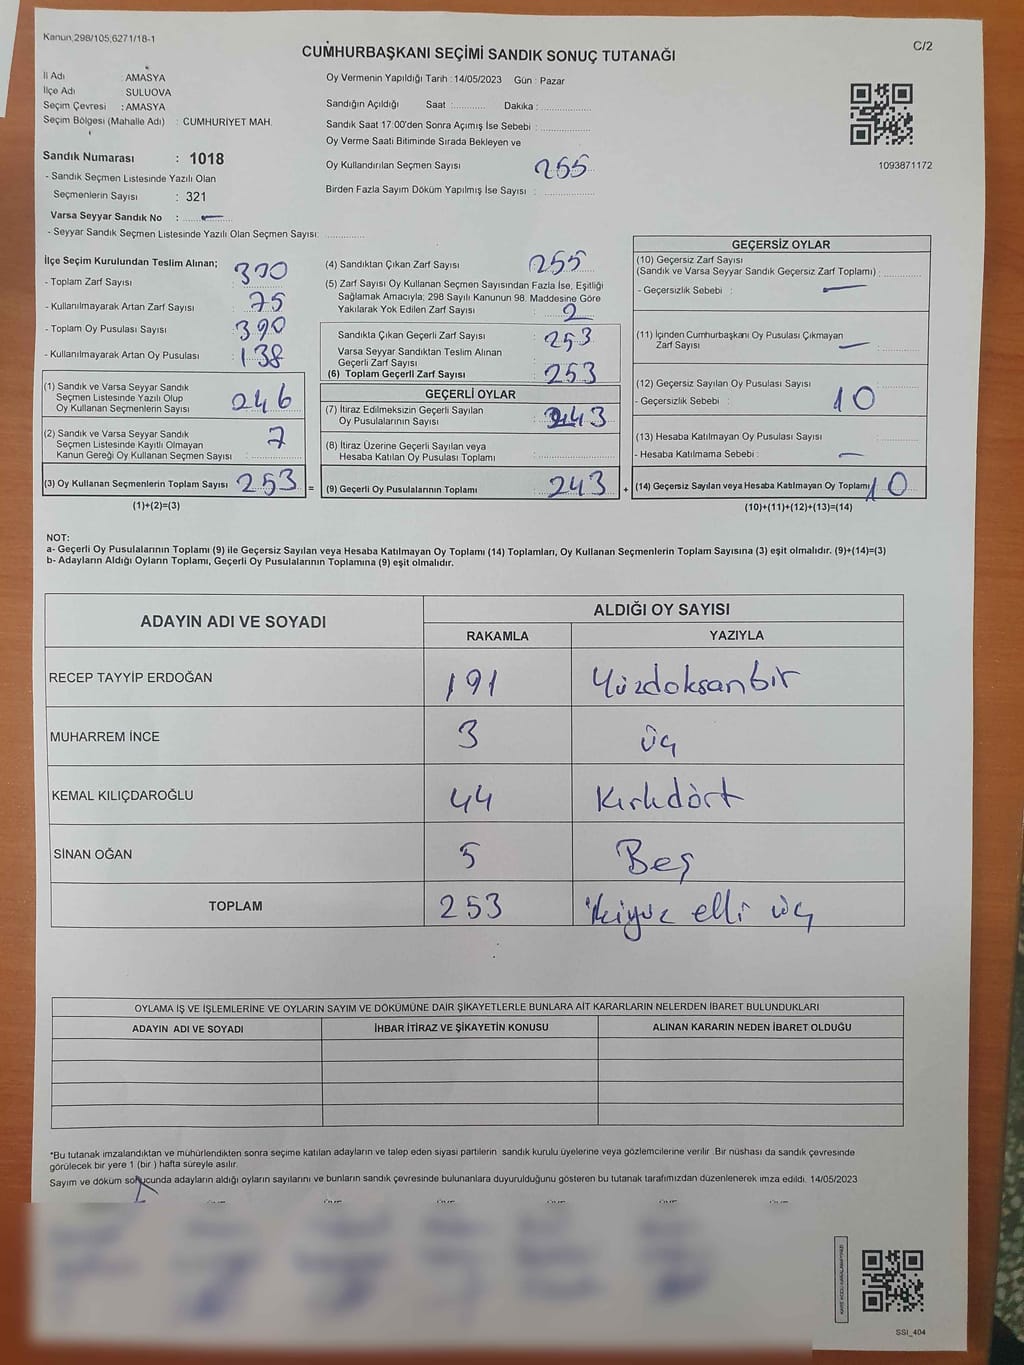 Kanun,298/105,6271/18-1
C/2
CUMHURBAŞKANI SEÇİMİ SANDIK SONUÇ TUTANAĞI
İl Adı : AMASYA
İlçe Adı : SULUOVA
Seçim Çevresi : AMASYA
Seçim Bölgesi (Mahalle Adı) : CUMHURİYET MAH.
Sandık Numarası : 1018
- Sandık Seçmen Listesinde Yazılı Olan
Seçmenlerin Sayısı : 321
Varsa Seyyar Sandık No : —
- Seyyar Sandık Seçmen Listesinde Yazılı Olan Seçmen Sayısı:
Oy Vermenin Yapıldığı Tarih : 14/05/2023 Gün : Pazar
Sandığın Açıldığı Saat : Dakika :
Sandık Saat 17:00'den Sonra Açımış İse Sebebi :
Oy Verme Saati Bitiminde Sırada Bekleyen ve
Oy Kullandırılan Seçmen Sayısı 255
Birden Fazla Sayım Döküm Yapılmış İse Sayısı :
1093871172
İlçe Seçim Kurulundan Teslim Alınan;
- Toplam Zarf Sayısı :
- Kullanılmayarak Artan Zarf Sayısı : 75
- Toplam Oy Pusulası Sayısı : 390
- Kullanılmayarak Artan Oy Pusulası : 138
(1) Sandık ve Varsa Seyyar Sandık
Seçmen Listesinde Yazılı Olup
Oy Kullanan Seçmenlerin Sayısı 246
(2) Sandık ve Varsa Seyyar Sandık
Seçmen Listesinde Kayıtlı Olmayan
Kanun Gereği Oy Kullanan Seçmen Sayısı : 7
(3) Oy Kullanan Seçmenlerin Toplam Sayısı 253 =
(1)+(2)=(3)
(4) Sandıktan Çıkan Zarf Sayısı 255
(5) Zarf Sayısı Oy Kullanan Seçmen Sayısından Fazla İse, Eşitliği
Sağlamak Amacıyla; 298 Sayılı Kanunun 98. Maddesine Göre
Yakılarak Yok Edilen Zarf Sayısı : 2
Sandıkta Çıkan Geçerli Zarf Sayısı : 253
Varsa Seyyar Sandıktan Teslim Alınan
Geçerli Zarf Sayısı
(6) Toplam Geçerli Zarf Sayısı 253
GEÇERLİ OYLAR
(7) İtiraz Edilmeksizin Geçerli Sayılan
Oy Pusulalarının Sayısı 243
(8) İtiraz Üzerine Geçerli Sayılan veya
Hesaba Katılan Oy Pusulası Toplamı
(9) Geçerli Oy Pusulalarının Toplamı : 243 +
GEÇERSİZ OYLAR
(10) Geçersiz Zarf Sayısı
(Sandık ve Varsa Seyyar Sandık Geçersiz Zarf Toplamı)
- Geçersizlik Sebebi : —
(11) İçinden Cumhurbaşkanı Oy Pusulası Çıkmayan
Zarf Sayısı —
(12) Geçersiz Sayılan Oy Pusulası Sayısı
- Geçersizlik Sebebi : 10
(13) Hesaba Katılmayan Oy Pusulası Sayısı
- Hesaba Katılmama Sebebi : —
(14) Geçersiz Sayılan veya Hesaba Katılmayan Oy Toplamı 10
(10)+(11)+(12)+(13)=(14)
NOT:
a- Geçerli Oy Pusulalarının Toplamı (9) ile Geçersiz Sayılan veya Hesaba Katılmayan Oy Toplamı (14) Toplamları, Oy Kullanan Seçmenlerin Toplam Sayısına (3) eşit olmalıdır. (9)+(14)=(3)
b- Adayların Aldığı Oyların Toplamı, Geçerli Oy Pusulalarının Toplamına (9) eşit olmalıdır.
ADAYIN ADI VE SOYADI
ALDIĞI OY SAYISI
RAKAMLA YAZIYLA
RECEP TAYYİP ERDOĞAN 191 Yüzdoksanbir
MUHARREM İNCE 3 üç
KEMAL KILIÇDAROĞLU 44 Kırkdört
SİNAN OĞAN 5 Beş
TOPLAM 253 ikiyüz elli üç
OYLAMA İŞ VE İŞLEMLERİNE VE OYLARIN SAYIM VE DÖKÜMÜNE DAİR ŞİKAYETLERLE BUNLARA AİT KARARLARIN NELERDEN İBARET BULUNDUKLARI
ADAYIN ADI VE SOYADI İHBAR İTİRAZ VE ŞİKAYETİN KONUSU ALINAN KARARIN NEDEN İBARET OLDUĞU
*Bu tutanak imzalandıktan ve mühürlendikten sonra seçime katılan adayların ve talep eden siyasi partilerin sandık kurulu üyelerine veya gözlemcilerine verilir. Bir nüshası da sandık çevresinde
görülecek bir yere 1 (bir ) hafta süreyle asılır.
Sayım ve döküm sonucunda adayların aldığı oyların sayılarını ve bunların sandık çevresinde bulunanlara duyurulduğunu gösteren bu tutanak tarafımızdan düzenlenerek imza edildi. 14/05/2023
SSI_404